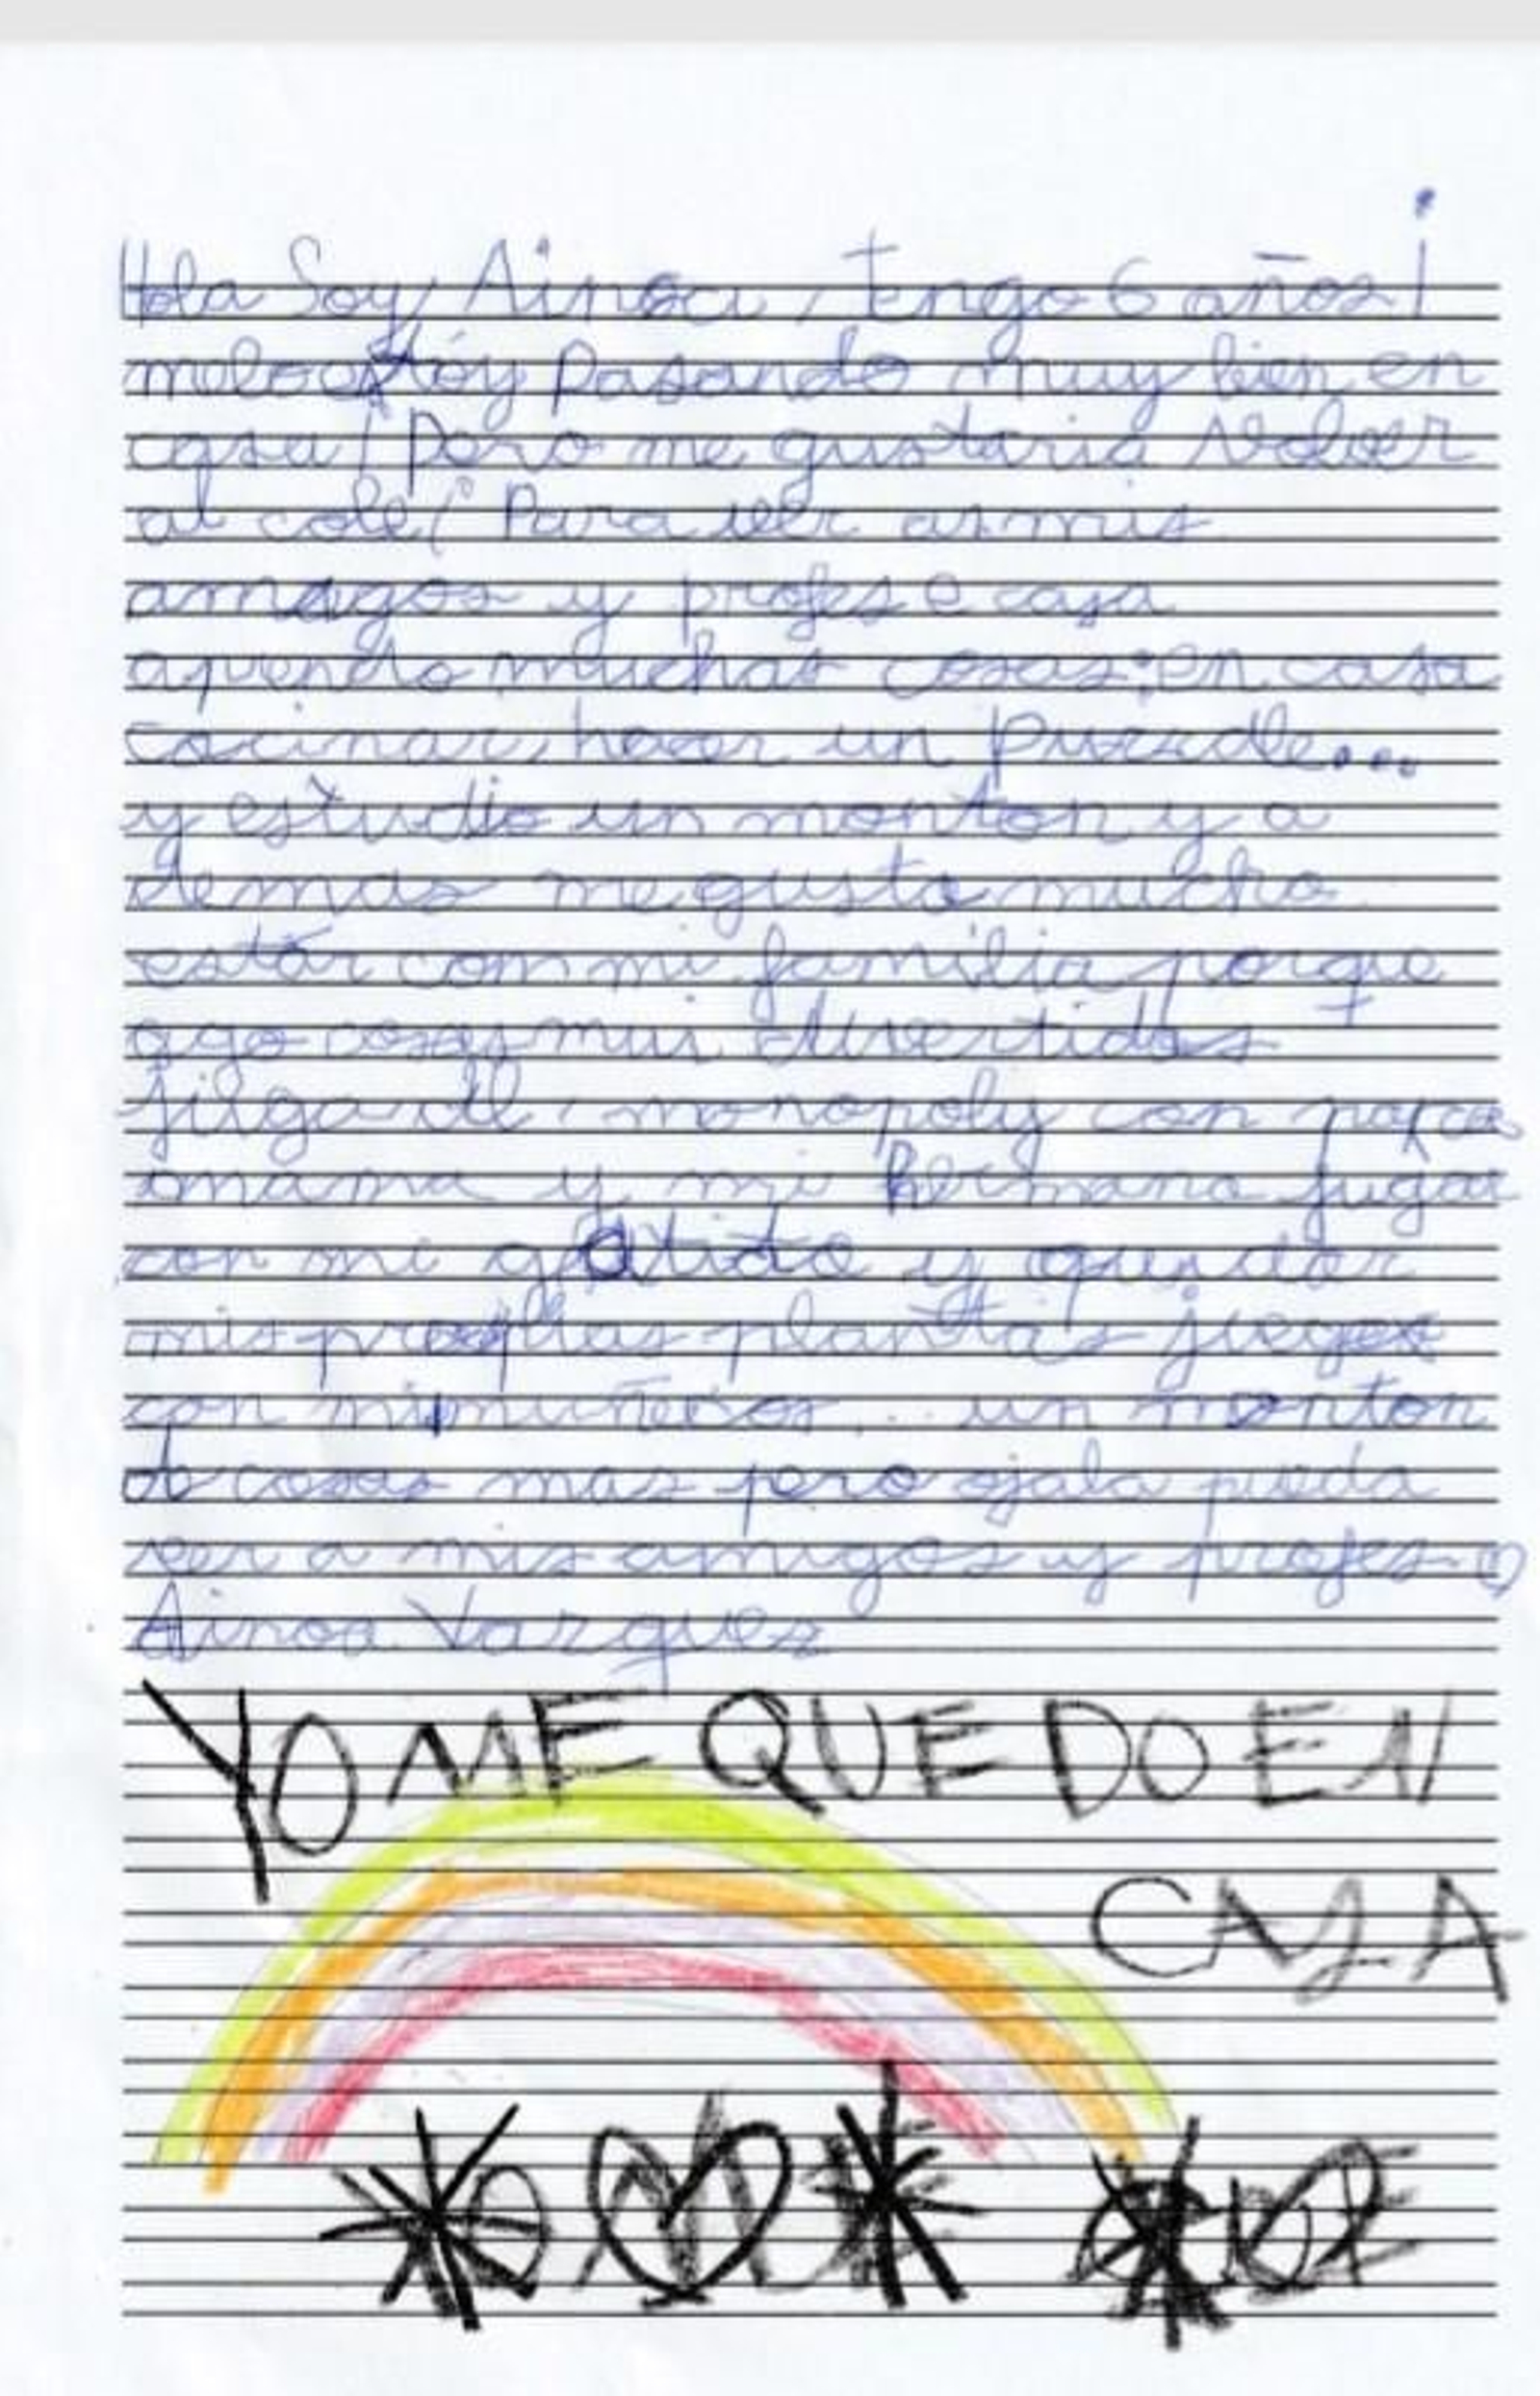 Hola Soy Ainoa, tengo 6 años ¡
meloestoy pasando muy bien en
casa! Pero me gustaria volver
al cole¡ Para ver a mis
amigos y profes e casa
aprendo muchas cosas: en casa
cocinar, hacer un puzzle...
y estudio un monton y a
demas me gusta mucho
estar com mi familia porque
ago cosas mui divertidas
monopoly con papa
mama y mi hermana jugar
con mi gatito y quidar
mis plantas juegos
con mis muñecos.. un monton
de cosas mas pero ojala pueda
ver a mis amigos y profes ♡
Ainoa Vazquez
YO ME QUEDO EN
CASA